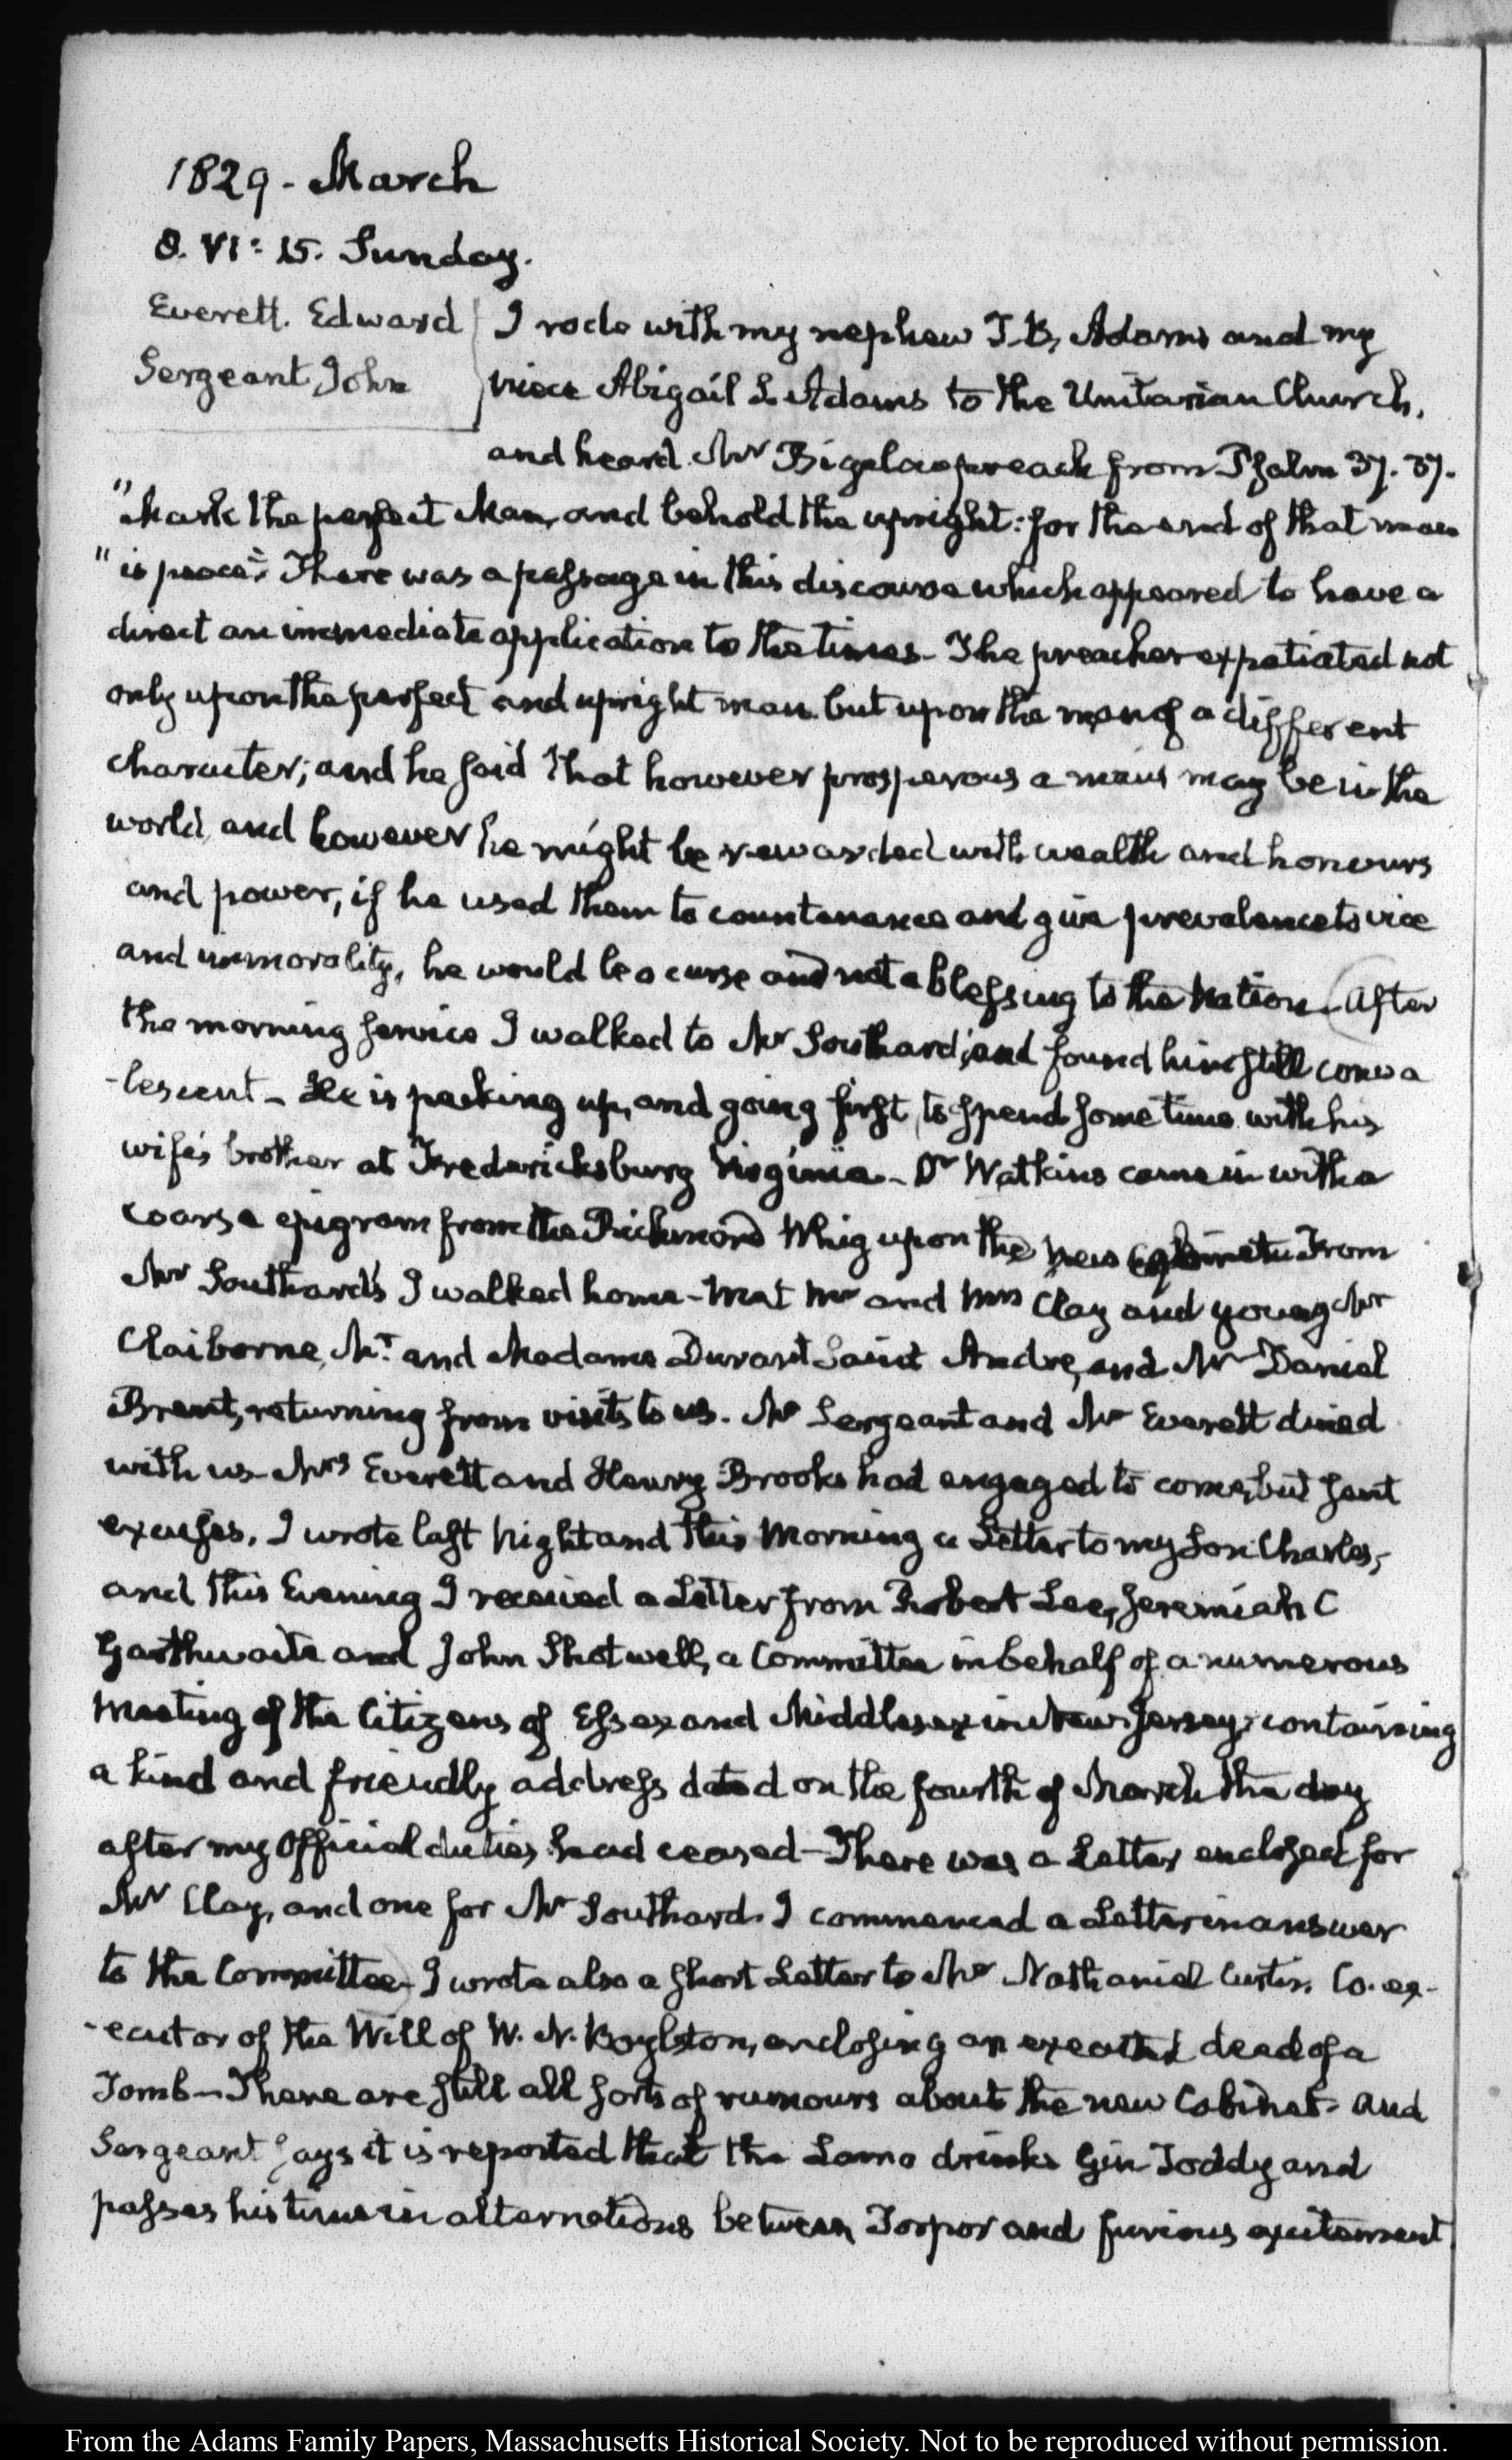 1829 - March
8. VI: 15. Sunday.
Everett. Edward
Sergeant John
I rode with my nephew T. B. Adams and my
niece Abigail S. Adams to the Unitarian Church,
and heard Mr Bigelow preach from Psalm 37. 37.
"Mark the perfect Man, and behold the upright: for the end of that man
"is peace". There was a passage in this discourse which appeared to have a
direct an immediate application to the times - The preacher expatiated not
only upon the perfect and upright man but upon the man of a different
character; and he said that however prosperous a man may be in the
world, and however he might be rewarded with wealth and honours
and power, if he used them to countenance and give prevalence to vice
and immorality, he would be a curse and not a blessing to the Nation - After
the morning service I walked to Mr Southard's, and found him still conva
-lescent - He is packing up, and going first, to spend some time with his
wife's brother at Fredericksburg Virginia - Dr Watkins came in with a
coarse epigram from the Richmond Whig upon the new Cabinet. From
Mr Southard's I walked home - Met Mr and Mrs Clay and young Mr
Claiborne, Mr. and Madame Durant Saint Andre, and Mr Daniel
Brent, returning from visits to us. Mr Sergeant and Mr Everett dined
with us - Mrs Everett and Henry Brooks had engaged to come, but sent
excuses. I wrote last Night and this Morning a Letter to my Son Charles,
and this Evening I received a Letter from Robert Lee, Jeremiah C
Garthwaite and John Shotwell, a Committee in behalf of a numerous
Meeting of the Citizens of Essex and Middlesex in New-Jersey, containing
a kind and friendly address dated on the fourth of March the day
after my Official duties had ceased - There was a Letter enclosed for
Mr Clay, and one for Mr Southard. I commenced a Letter in answer
to the Committee - I wrote also a short Letter to Mr Nathaniel Curtis. Co. ex-
-ecutor of the Will of W. N. Boylston, enclosing an executed deed of a
Tomb - There are still all sorts of rumours about the new Cabinet - and
Sergeant says it is reported that the Lama drinks Gin Toddy and
passes his time in alternations between Torpor and furious excitement
From the Adams Family Papers, Massachusetts Historical Society. Not to be reproduced without permission.